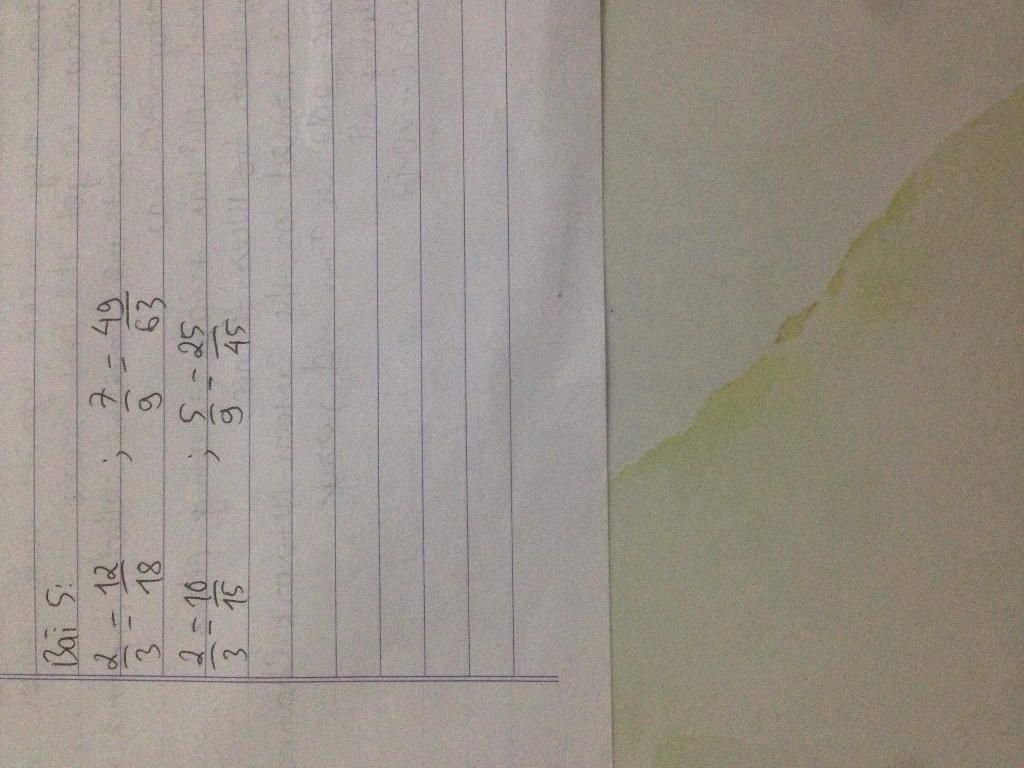 Bài 5:
2/3 = 12/18 ; 7/9 = 49/63
2/3 = 10/15 ; 5/9 = 25/45